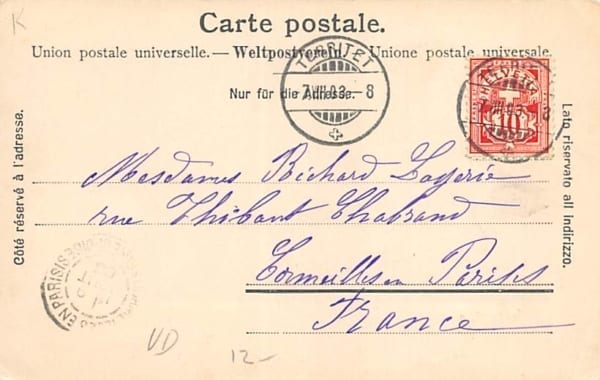 K
Carte postale.
Union postale universelle. — Weltpostverein. — Unione postale universale.
TERRITET
7.VIII.03.–8
HELVETIA
10
Nur für die Adresse.
Côté réservé à l'adresse.
Lato riservato all indirizzo.
Mesdames Richard Lagerie
rue Thibaut Chabrand
Cormeilles en Parisis
France
EN PARISIS
VD
12–